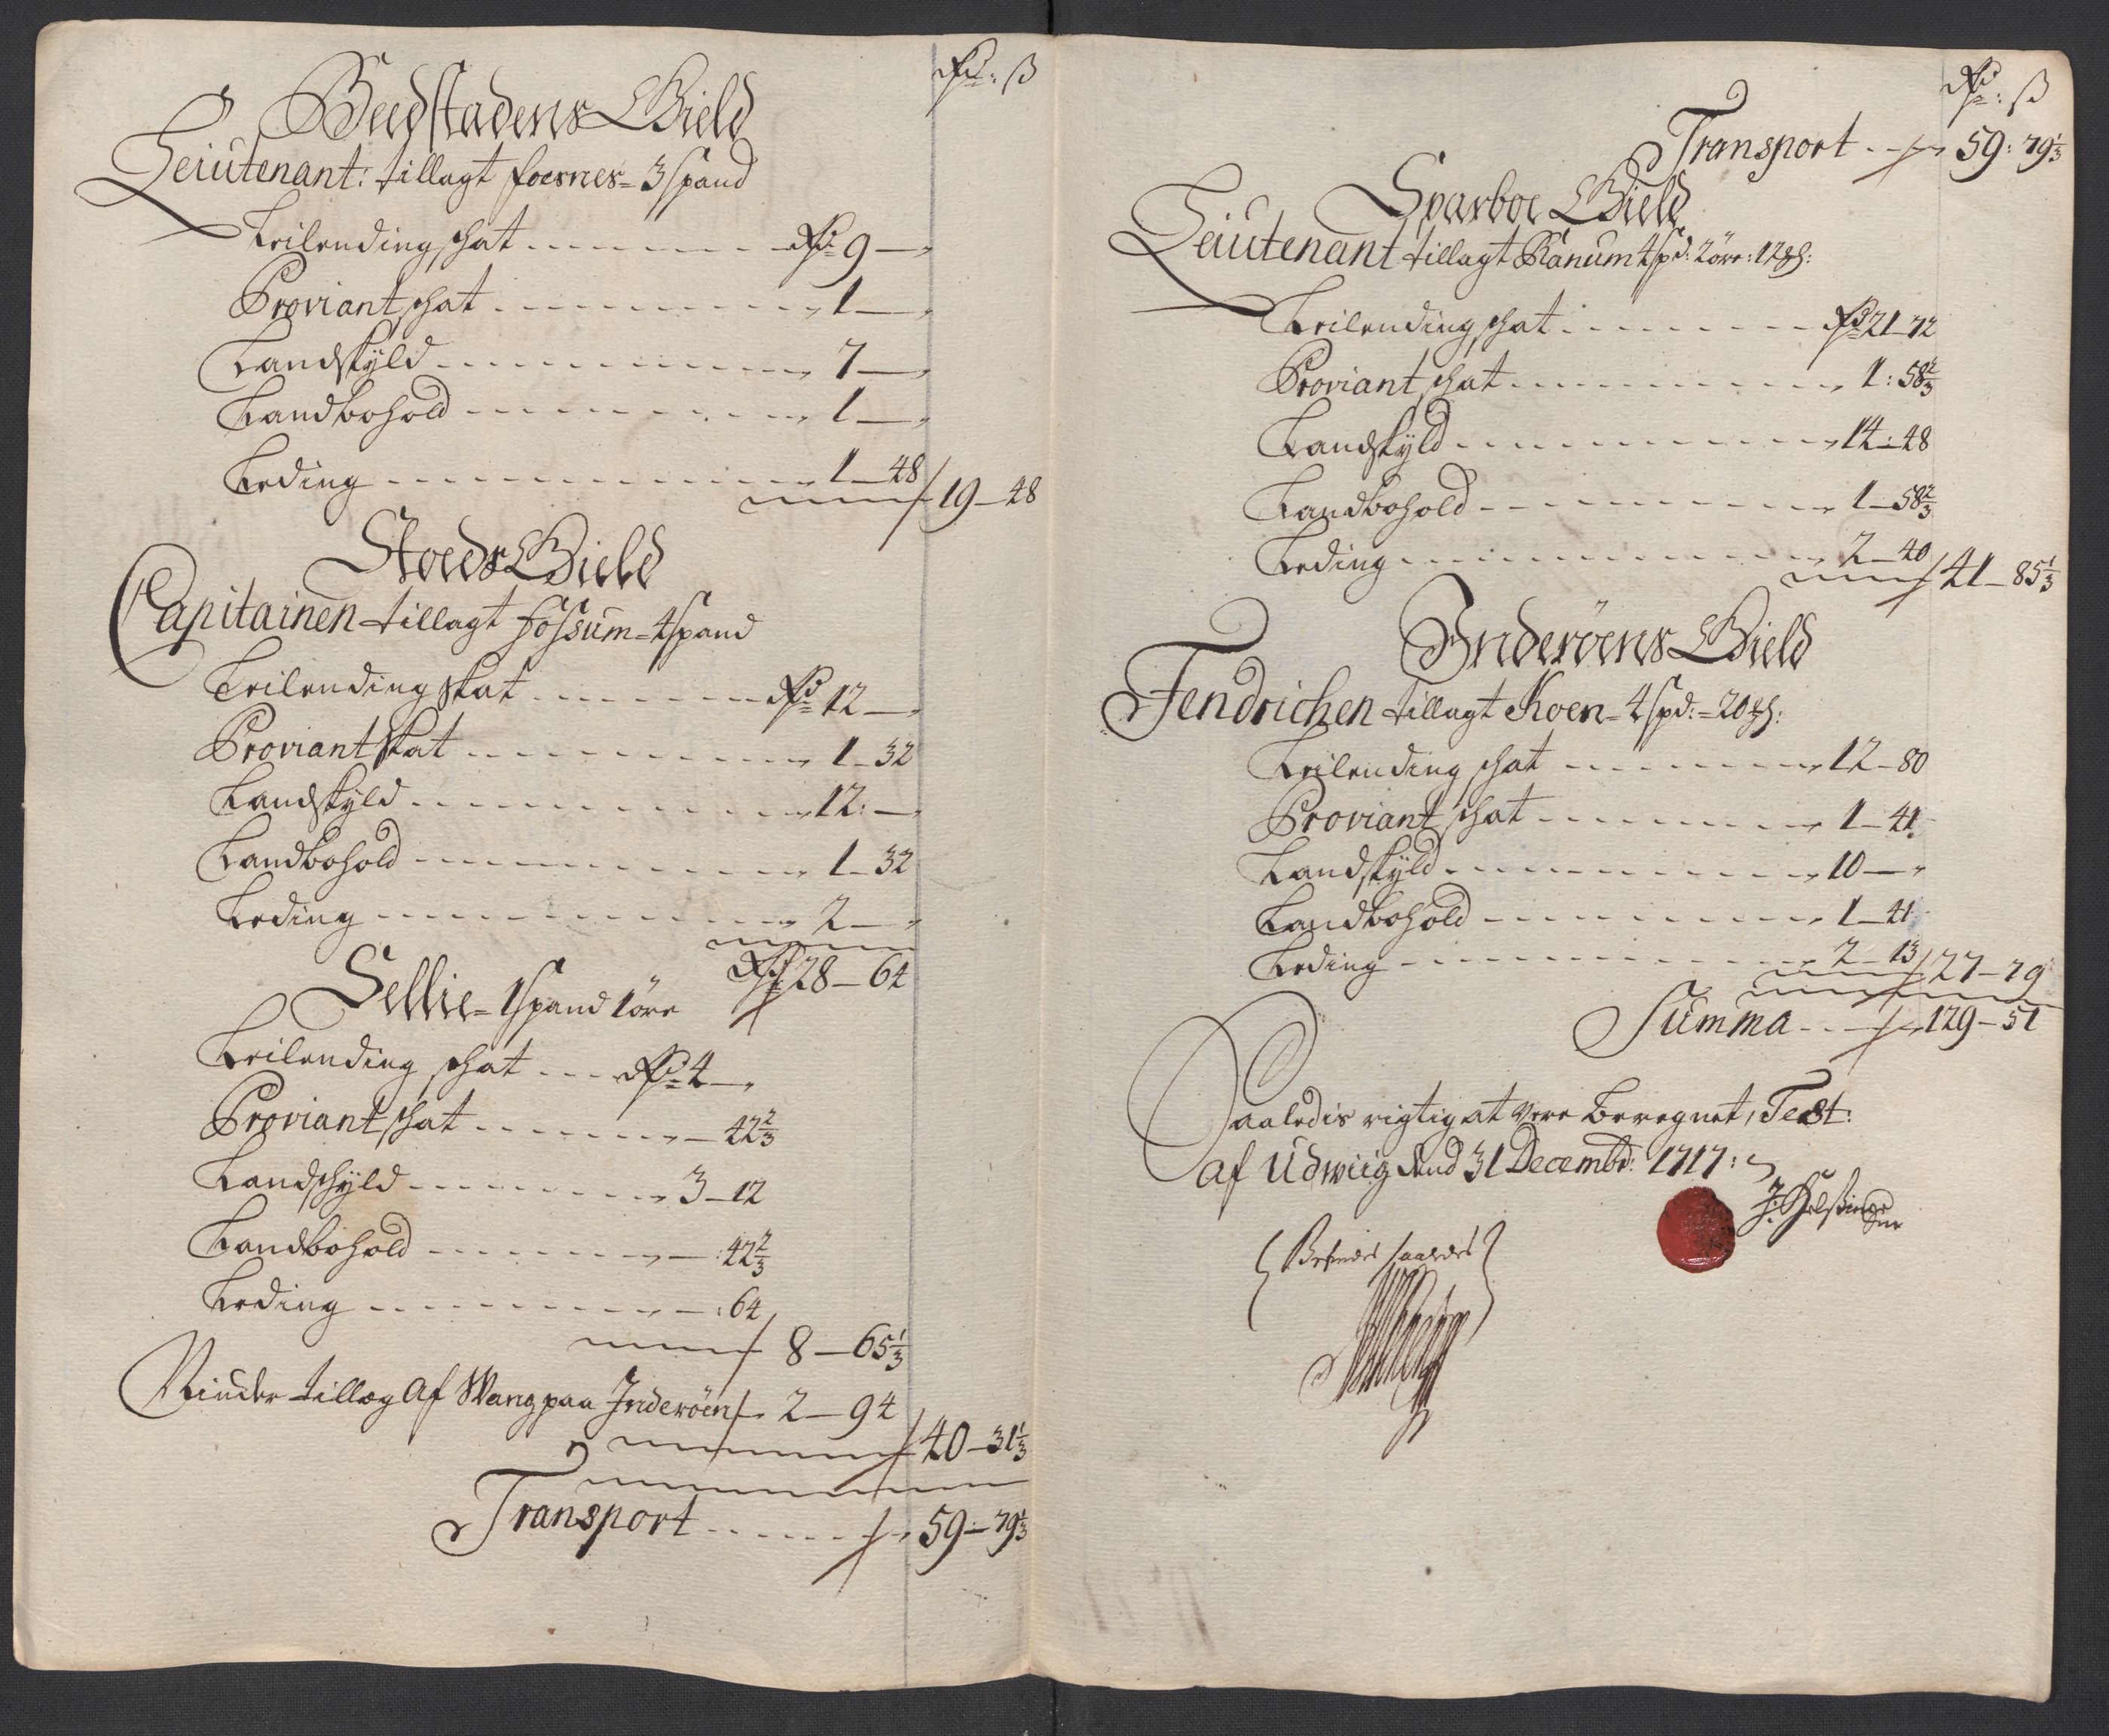 Rdr: ß
Beedstadens Gield
Leiutenant: tillagt foesnes = 3 spand
Leilending schat Rdr 9 —
Proviant schat 1 —
Landskyld 7 —
Landbohold 1 —
Leding 1 — 48
19 — 48
Stoeds Gield
Capitainen tillagt Fossum = 4 spand
Leilending skat Rdr 12 —
Proviant skat 1 — 32
Landskyld 12: —
Landbohold 1 — 32
Leding 2 —
Rdr 28 — 64
Sellie = 1 spand 1 øre
Leilending schat Rdr 4 —
Proviant schat — 42 2/3
Landschyld 3 — 12
Landbohold — : 42 2/3
Leding — : 64
8 — 65 1/3
Minder tillæg Af Wang paa Inderøen 2 — 94
40 — 31 1/3
Transport 59 — 79 1/3
Rdr: ß
Transport 59: 79 1/3
Sparboe Gield
Leiutenant tillagt 4 spd: 2 øre: 12
Leilending schat Rdr 21 — 72
Proviant schat 1: 58 2/3
Landskyld 14 — 48
Landbohold 1 — 58 2/3
Leding 2 — 40
41 — 85 1/3
Inderöens Gield
Fendrichen tillagt Koen = 4 spd: = 20
Leilending schat 12 — 80
Proviant schat 1 — 41
Landskyld 10 —
Landbohold 1 — 41
Leding 2 — 13
27 — 79
Summa 129 — 51
Saaledis rigtig at vere beregnet, Test:
af Udwiig dend 31 Decembr: 1717:
Befindes saaledes